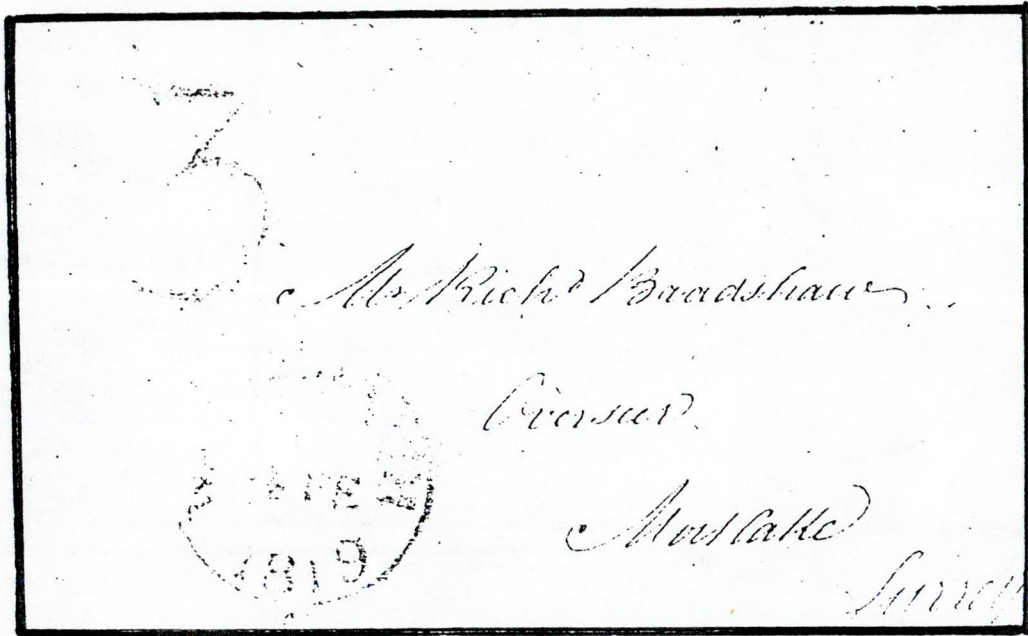 3
Mr Richd Bradshaw
Overseer
Mortlake
Surrey
1819